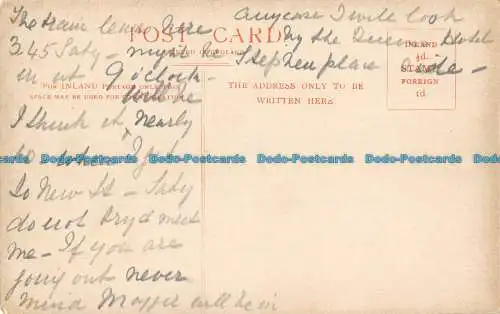 The train leaves here
3.45 Saty – might be
in at 9 o'clock –
will be
I think it nearly
10 when I get
to New St – Saty
do not try & meet
me – If you are
going out never
mind Maggie will be in
any case I will look
by the Queens Hotel
Stephenson place side –
POST CARD
INLAND
½d.
STAMP
FOREIGN
1d.
FOR INLAND POSTAGE ONLY THIS
SPACE MAY BE USED FOR COMMUNICATION
THE ADDRESS ONLY TO BE
WRITTEN HERE
Dodo-Postcards Dodo-Postcards Dodo-Postcards Dodo-Postcards Dodo-Postcards